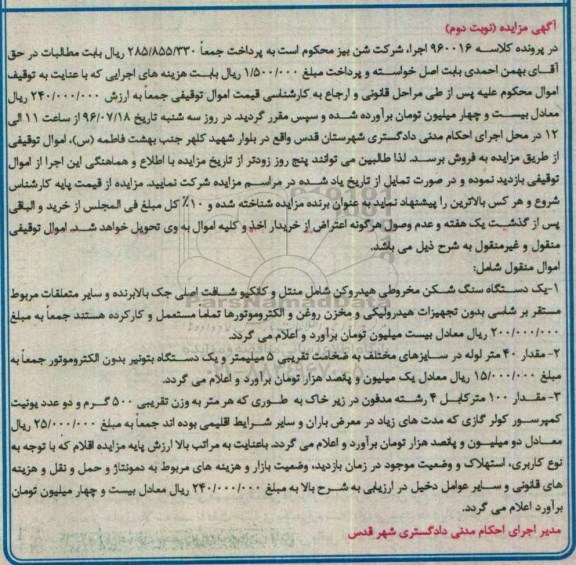 آگهی مزایده (نوبت دوم)
در پرونده کلاسه ۹۶۰۰۱۶ اجرا، شرکت شن بیز محکوم است به پرداخت جمعاً ۲۸۵/۸۵۵/۳۳۰ ریال بابت مطالبات در حق
آقـای بهمن احمدی بابت اصل خواسته و پرداخت مبلغ ۱/۵۰۰/۰۰۰ ریال بابـت هزینه های اجرایی که با عنایت به توقیف
اموال محکوم علیه پس از طی مراحل قانونی و ارجاع به کارشناسی قیمت اموال توقیفی جمعاً به ارزش ۲۴۰/۰۰۰/۰۰۰ ریال
معادل بیست و چهار میلیون تومان برآورده شـده و سپس مقرر گردید، در روز سه شنبه تاریخ ۹۶/۰۷/۱۸ از ساعت ۱۱ الی
۱۲ در محل اجرای احکام مدنی دادگستری شهرستان قدس واقع در بلوار شهید کلهر جنب بهشت فاطمه (س)، اموال توقیفی
از طریق مزایده به فروش برسد. لذا طالبین می توانند پنج روز زودتر از تاریخ مزایده با اطلاع و هماهنگی این اجرا از اموال
توقیفی بازدید نموده و در صورت تمایل از تاریخ یاد شـده در مراسـم مزایده شرکت نمایید. مزایده از قیمت پایه کارشناس
شروع و هر کس بالاترین را پیشنهاد نماید به عنوان برنده مزایده شناخته شده و ۱۰٪ کل مبلغ فی المجلس از خرید و الباقی
پس از گذشـت یک هفته و عدم وصول هرگونه اعتراض از خریدار اخذ و کلیه اموال به وی تحویل خواهد شـد. اموال توقیفی
منقول و غیرمنقول به شرح ذیل می باشد.
اموال منقول شامل:
۱-یک دستگاه سنگ شکن مخروطی هیدروکن شامل منتل و کانکیو شـافت اصلی جک بالابرنده و سایر متعلقات مربوط
مستقر بر شاسی بدون تجهیزات هیدرولیکی و مخزن روغن و الکتروموتورها تماماً مستعمل و کارکرده هستند جمعاً به مبلغ
۲۰۰/۰۰۰/۰۰۰ ریال معادل بیست میلیون تومان برآورد و اعلام می گردد.
۲- مقدار ۴۰ متر لوله در سـایزهای مختلف به ضخامت تقریبی ۵ میلیمتر و یک دسـتگاه بتونیر بدون الکتروموتور جمعاً به
مبلغ ۱۵/۰۰۰/۰۰۰ ریال معادل یک میلیون و پانصد هزار تومان برآورد و اعلام می گردد.
۳- مقـدار ۱۰۰ مترکابـل ۴ رشـته مدفون در زیر خاک به طوری که هر متر به وزن تقریبی ۵۰۰ گـرم و دو عدد یونیت
کمپرسـور کولر گازی که مدت های زیاد در معرض باران و سایر شرایط اقلیمی بوده اند جمعاً به مبلغ ۲۵/۰۰۰/۰۰۰ ریال
معـادل دو میلیـون و پانصد هزار تومان برآورد و اعلام می گردد. باعنایت به مراتب بالا ارزش پایه مزایده اقلام که با توجه به
نوع کاربری، استهلاک و وضعیت موجود در زمان بازدید، وضعیت بازار و هزینه های مربوط به دمونتاژ و حمل و نقل و هزینه
های قانونی و سـایر عوامل دخیل در ارزیابی به شـرح بالا به مبلغ ۲۴۰/۰۰۰/۰۰۰ ریال معادل بیست و چهار میلیون تومان
برآورد اعلام می گردد.
مدیر اجرای احکام مدنی دادگستری شهر قدس
ParsNamadData